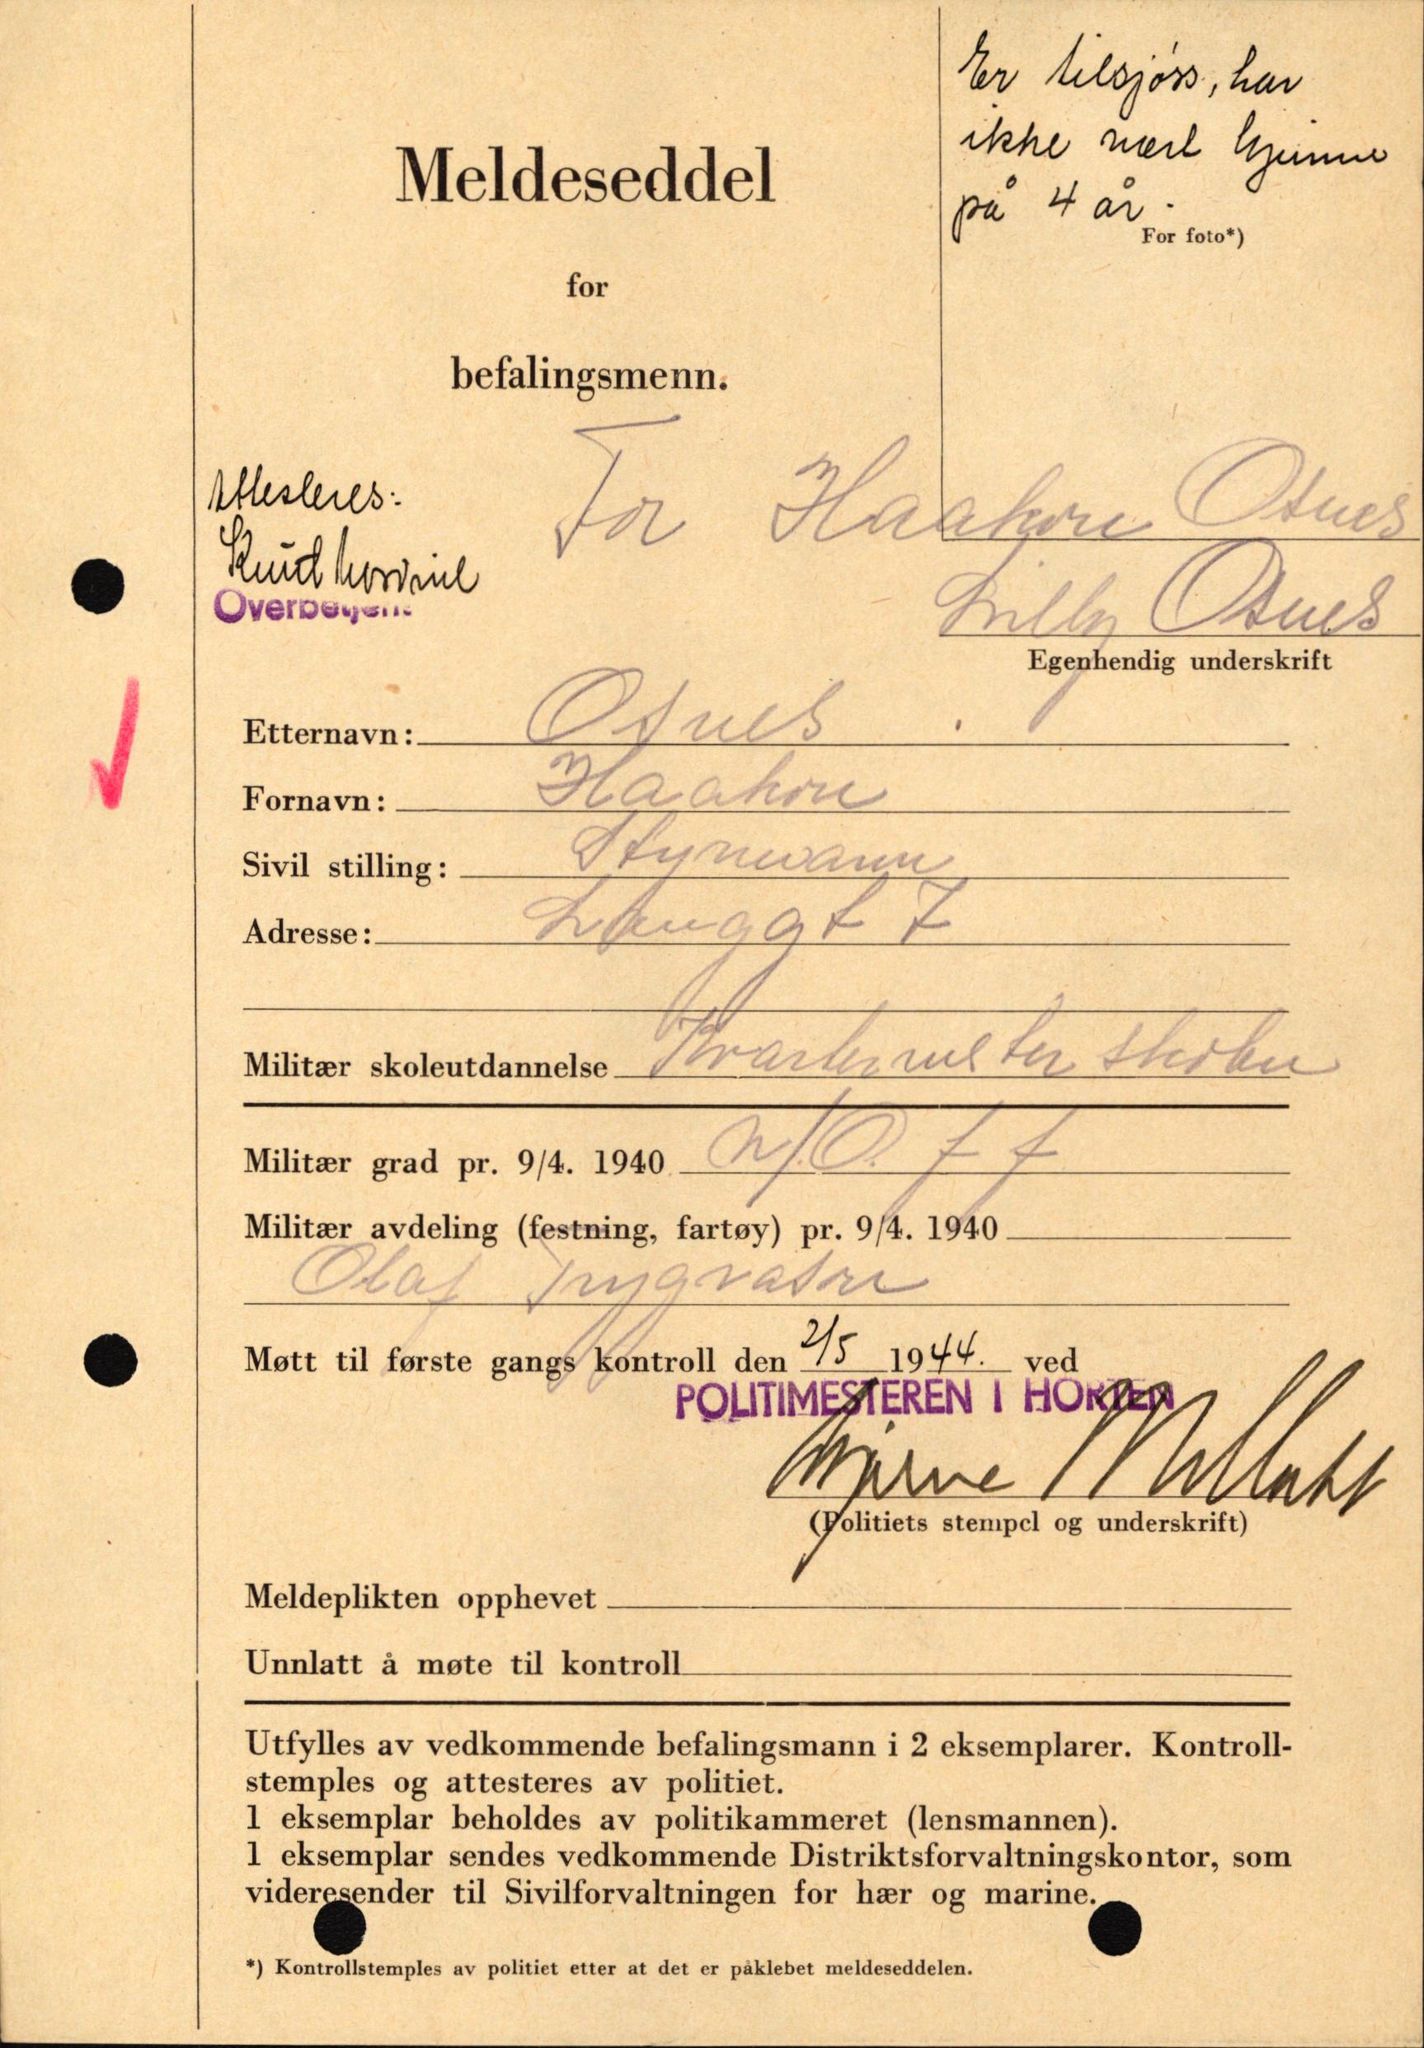 Er tilsjøss, har
ikke vært hjemme
på 4 år.
For foto*)
Meldeseddel
for
befalingsmenn.
For Haakon Osnes
Attesteres:
Knut
Overbetjent
Lilly Osnes
Egenhendig underskrift
Etternavn: Osnes
Fornavn: Haakon
Sivil stilling: Styrmann
Adresse: Langgt 7
Militær skoleutdannelse Kvartermesterskolen
Militær grad pr. 9/4. 1940 u/O. f f
Militær avdeling (festning, fartøy) pr. 9/4. 1940
Olaf Trygvason
Møtt til første gangs kontroll den 2/5 1944. ved
POLITIMESTEREN I HORTEN
(Politiets stempel og underskrift)
Meldeplikten opphevet
Unnlatt å møte til kontroll
Utfylles av vedkommende befalingsmann i 2 eksemplarer. Kontroll-
stemples og attesteres av politiet.
1 eksemplar beholdes av politikammeret (lensmannen).
1 eksemplar sendes vedkommende Distriktsforvaltningskontor, som
videresender til Sivilforvaltningen for hær og marine.
*) Kontrollstemples av politiet etter at det er påklebet meldeseddelen.